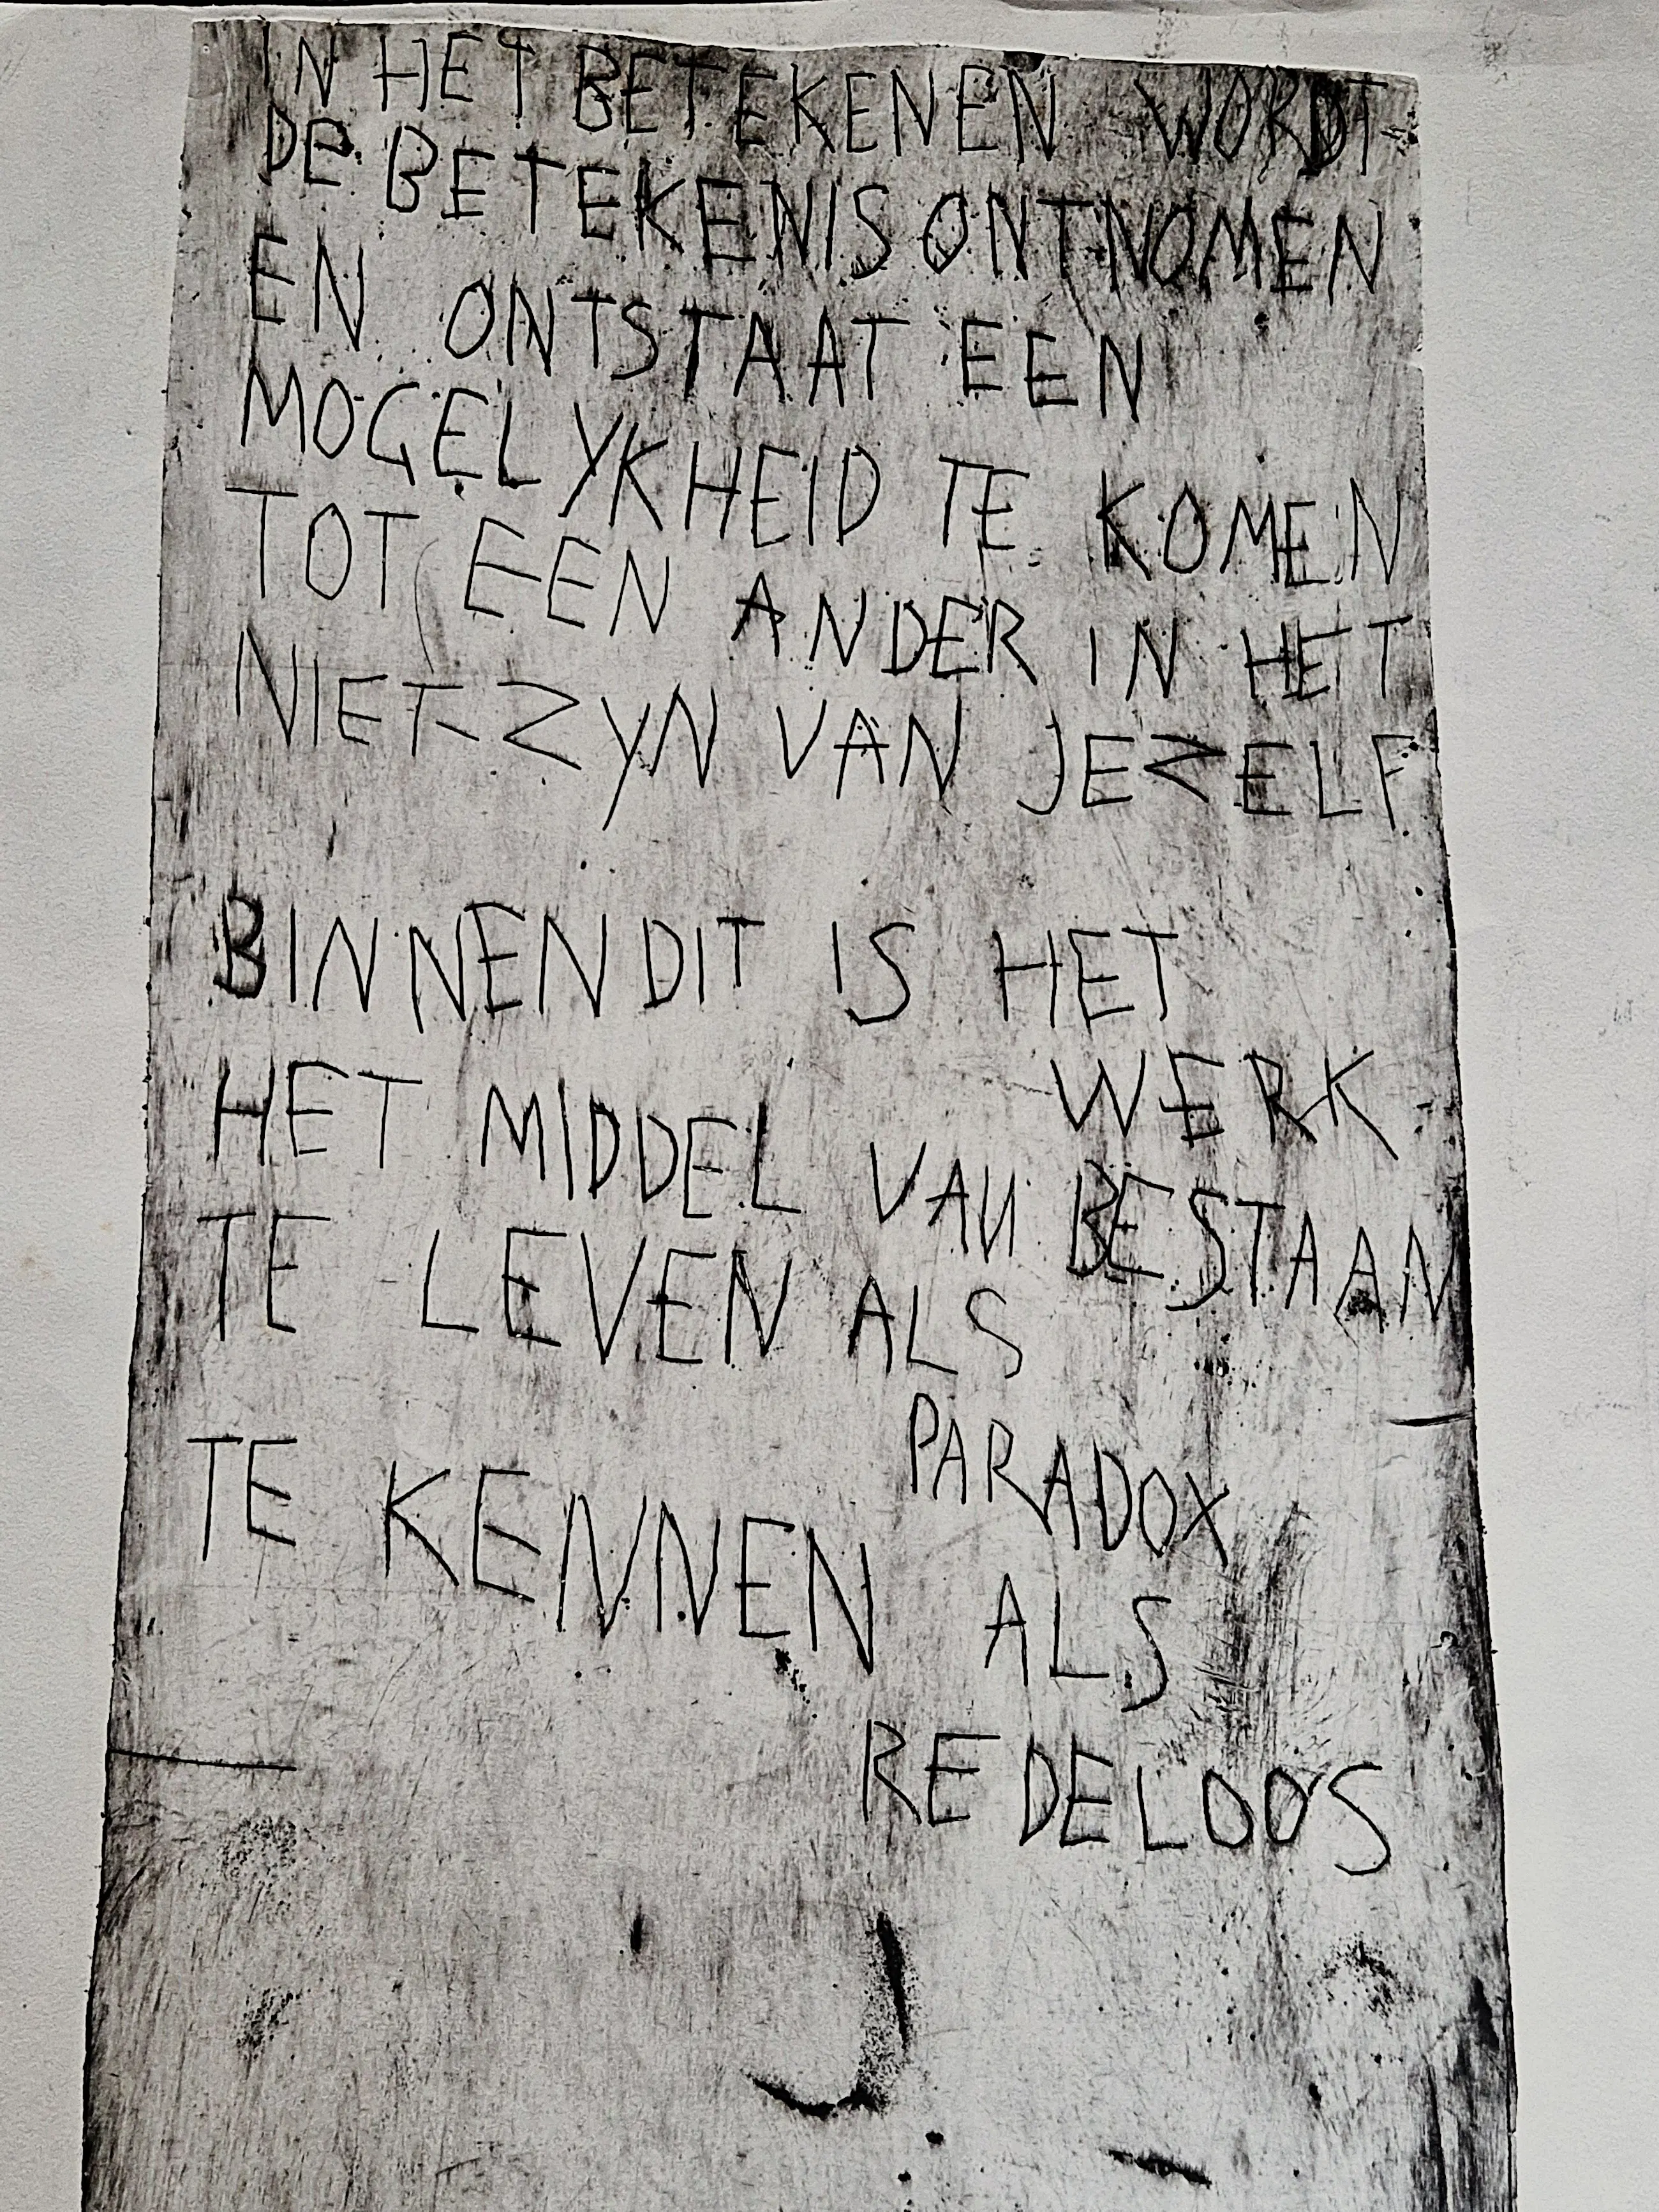 IN HET BETEKENEN WORDT
De BETEKENIS ONTNOMEN
EN ONTSTAAT EEN
MOGELYKHEID TE KOMEN
TOT EEN ANDER IN HET
NIET-ZYN VAN JEZELF
BINNEN DIT IS HET
WERK
HET MIDDEL VAN BESTAAN
TE LEVEN ALS
PARADOX
TE KENNEN ALS
REDELOOS